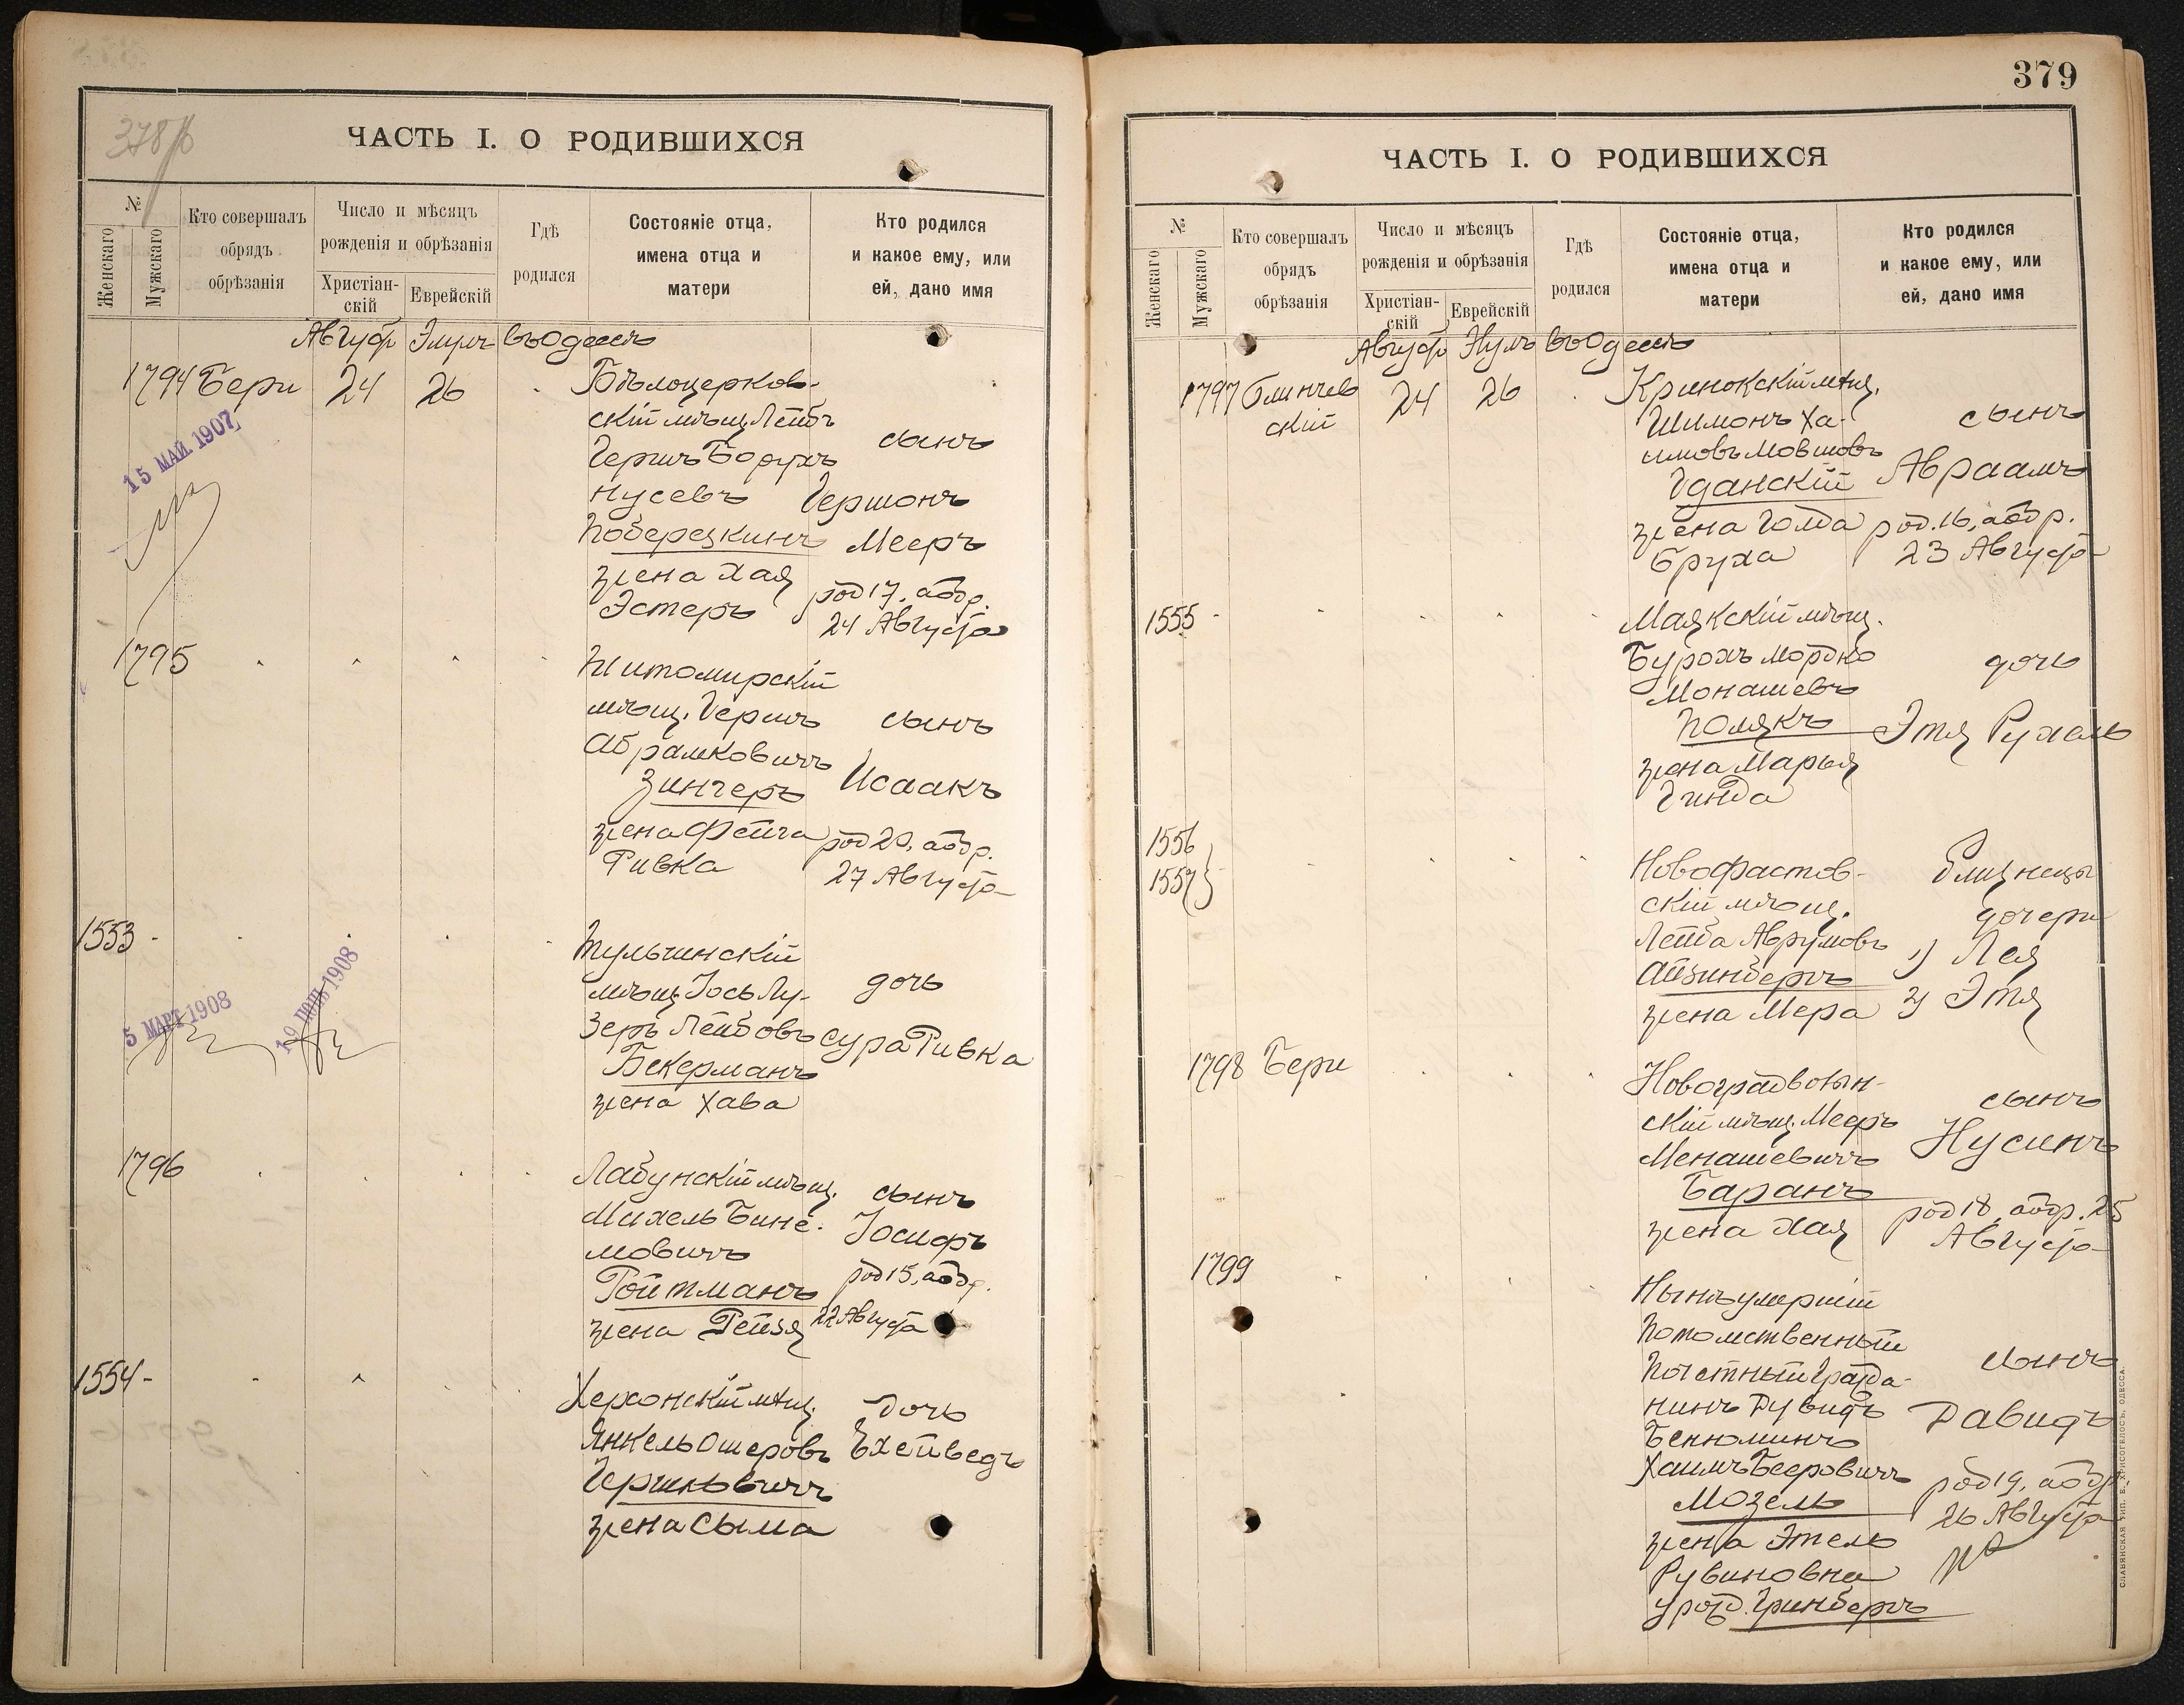 378 б
ЧАСТЬ I. О РОДИВШИХСЯ
№
Женскаго
Мужскаго
Кто совершалъ
обрядъ
обрѣзанія
Число и мѣсяцъ
рожденія и обрѣзанія
Христіан-
скій
Еврейскій
Гдѣ
родился
Состояніе отца,
имена отца и
матери
Кто родился
и какое ему, или
ей, дано имя
Августъ Элулъ въ Одессѣ
1794 Бери 24 26
Бѣлоцерков-
скій мѣщ. Лейбъ
Гершъ Борухъ
Нусевъ
Поберезкинъ
жена Хая
Эстеръ
сынъ
Гершонъ
Мееръ
род 17, а обр.
24 Августа
15 МАЙ 1907
1795
Житомирскій
мѣщ. Гершъ
Абрамковичъ
Зингеръ
жена Фейга
Ривка
сынъ
Исаакъ
род 20, а обр.
27 Августа
1553 -
Тульчинскій
мѣщ. Іось Лу-
зеръ Лейбовъ
Бекерманъ
жена Хава
дочь
Сура Ривка
5 МАРТ 1908
19 1908
1796
Лабунскій мѣщ.
Михель Бине-
мовичъ
Ройтманъ
жена Рейзя
сынъ
Іосифъ
род 15, а обр.
22 Августа
1554 -
Херсонскій мѣщ.
Янкель Ошеровъ
Гершковичъ
жена Сыма
дочь
Ехейведъ
379
ЧАСТЬ I. О РОДИВШИХСЯ
№
Женскаго
Мужскаго
Кто совершалъ
обрядъ
обрѣзанія
Число и мѣсяцъ
рожденія и обрѣзанія
Христіан-
скій
Еврейскій
Гдѣ
родился
Состояніе отца,
имена отца и
матери
Кто родился
и какое ему, или
ей, дано имя
Августъ въ Одессѣ
1797 Блинчев
скій
24 26
Кринокскій мѣщ.
Шимонъ Ха-
имовъ Мовшовъ
Гданскій
жена Голда
Бруха
сынъ
Авраамъ
род. 16, а обр.
23 Августа
1555 -
Маякскій мѣщ.
Бурохъ Мордко
Монашевъ
Полякъ
жена Марья
Гинда
дочь
Этя Рухель
1556
1557
Новофастов-
скій мѣщ.
Лейба Аврумовъ
Айзинбергъ
жена Мера
близнецы
дочери
1) Лея
2) Этя
1798 Бери
Новоградволын-
скій мѣщ. Мееръ
Менашевичъ
Баранъ
жена Хая
сынъ
Нусинъ
род 18, а обр. 25
Августа
1799
Нынѣ умершій
Потомственный
Почетный Гражда-
нинъ Дувидъ
Бенюминъ
Хаимъ Бееровичъ
Мозель
жена Этель
Рувиновна
урожд. Гринбергъ
сынъ
Давидъ
род 19, а обр
26 Августа
СЛАВЯНСКАЯ ТИП. Е. ХРИСОГЕЛОСЪ, ОДЕССА.